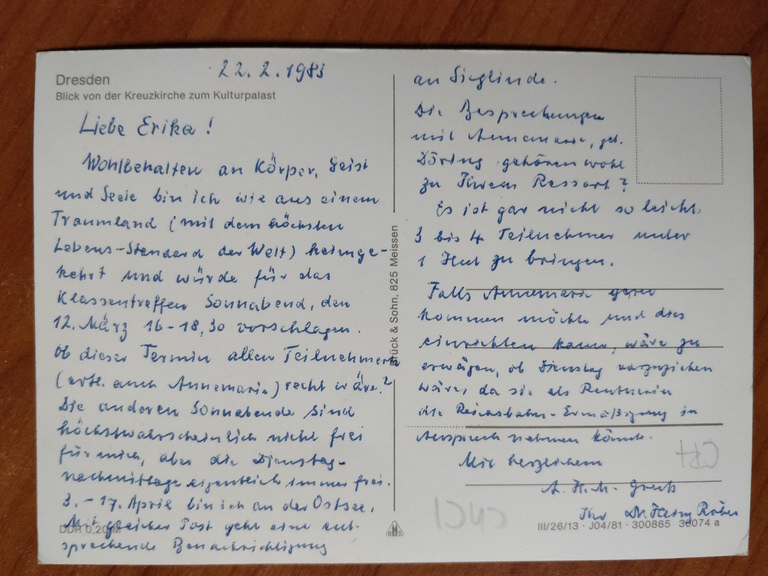 Dresden
Blick von der Kreuzkirche zum Kulturpalast
22.2.1983
Liebe Erika!
Wohlbehalten an Körper, Geist
und Seele bin ich wie aus einem
Traumland (mit dem höchsten
Lebens-Standard der Welt) heimge-
kehrt und würde für das
Klassentreffen Sonnabend, den
12. März 16-18,30 vorschlagen.
Ob dieser Termin allen Teilnehmern
(evtl. auch Annemarie) recht wäre?
Die anderen Sonnabende sind
höchstwahrscheinlich nicht frei
für mich, aber die Dienstag-
nachmittage eigentlich immer frei.
3.-17. April bin ich an der Ostsee.
Mit gleicher Post geht eine ent-
sprechende Benachrichtigung
DDR 0,20 M
Brück & Sohn, 825 Meissen
an Sieglinde.
Die Besprechungen
mit Annemarie, geb.
Döring gehören wohl
zu Ihrem Ressort?
Es ist gar nicht so leicht,
3 bis 4 Teilnehmer unter
1 Hut zu bringen.
Falls Annemarie gern
kommen möchte und dies
einrichten kann, wäre zu
erwägen, ob Dienstag vorzuziehen
wäre, da sie als Rentnerin
die Reichsbahn-Ermäßigung in
Anspruch nehmen könnte.
Mit herzlichem
A. H. M. Gruß
Ihr Dr.
III/26/13 · J04/81 · 300865 30074 a